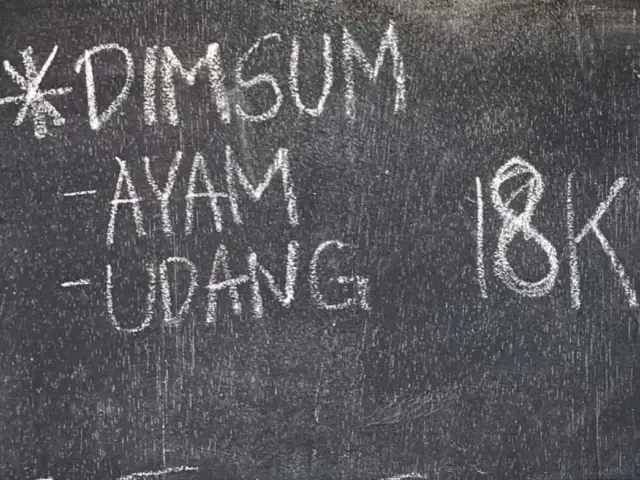 *DIMSUM
-AYAM
-UDANG
18K